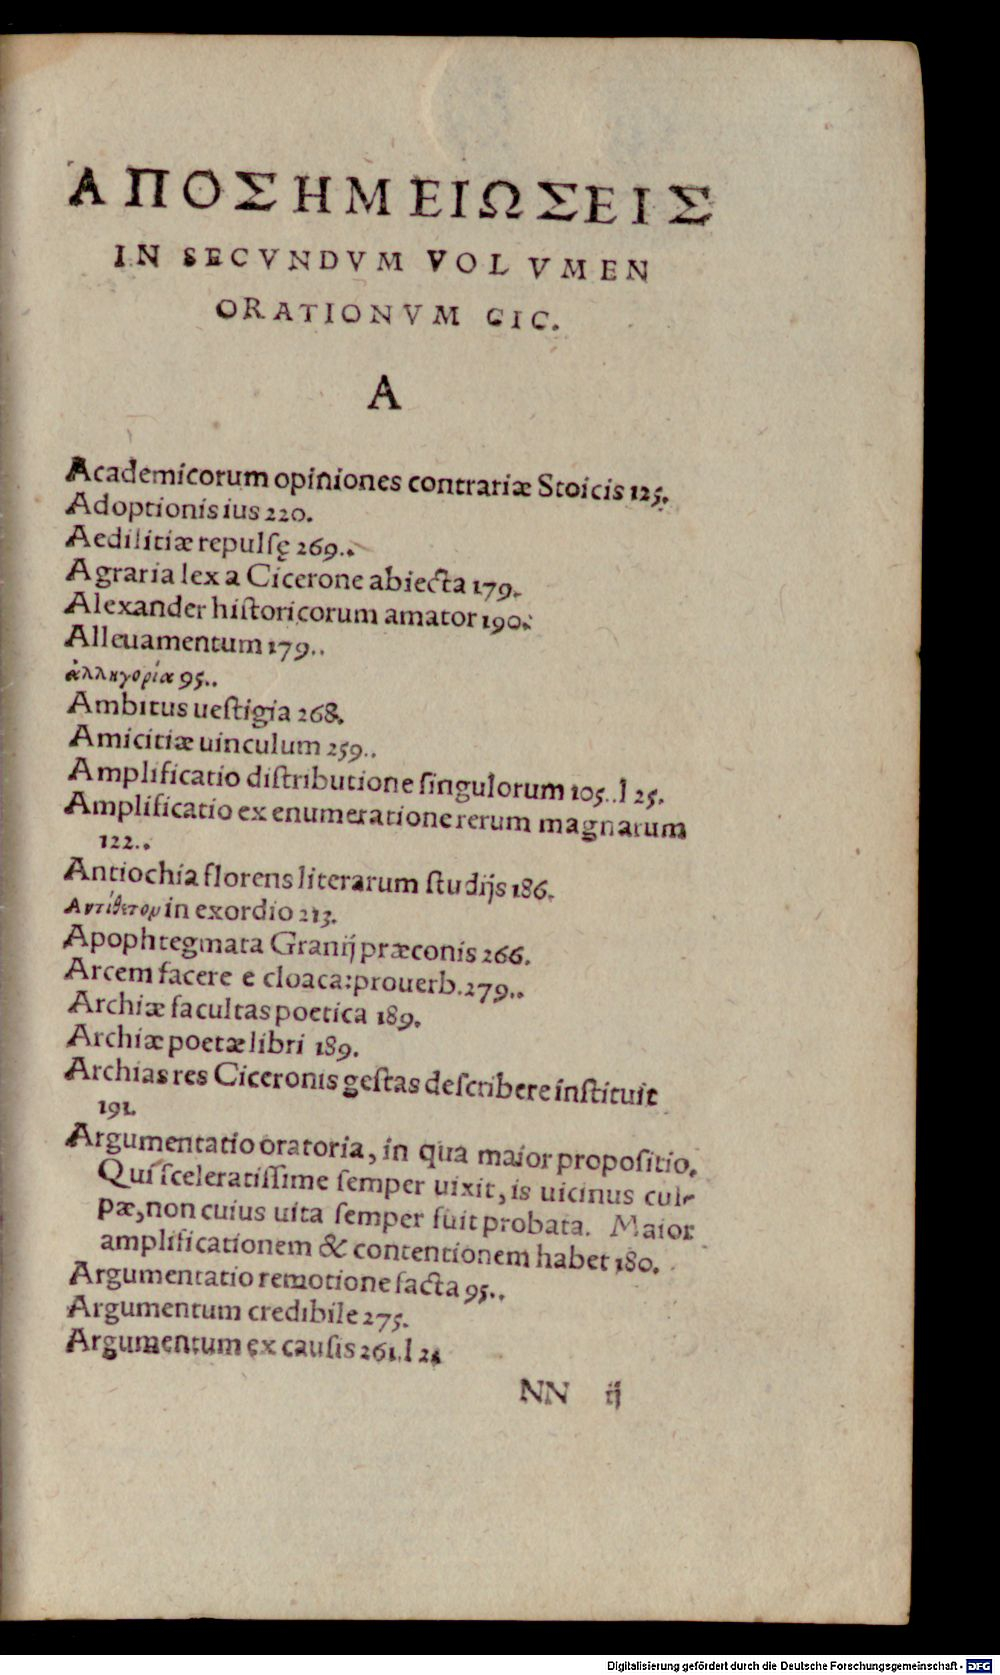 ΑΠΟΣΗΜΕΙΩΣΕΙΣ
IN SECVNDVM VOLVMEN
ORATIONVM CIC.
A
Academicorum opiniones contrariæ Stoicis 125.
Adoptionis ius 220.
Aedilitiæ repulsę 269..
Agraria lex a Cicerone abiecta 179.
Alexander historicorum amator 190.
Alleuamentum 179..
ἀλληγορία 95..
Ambitus uestigia 268.
Amicitiæ uinculum 259..
Amplificatio distributione singulorum 105..l 25.
Amplificatio ex enumeratione rerum magnarum
122..
Antiochia florens literarum studijs 186.
Αντίθετον in exordio 213.
Apophtegmata Granij præconis 266.
Arcem facere e cloaca: prouerb. 279..
Archiæ facultas poetica 189.
Archiæ poetæ libri 189.
Archias res Ciceronis gestas describere instituit
191.
Argumentatio oratoria, in qua maior propositio.
Qui sceleratissime semper uixit, is uicinus cul-
pæ, non cuius uita semper fuit probata. Maior
amplificationem & contentionem habet 180.
Argumentatio remotione facta 95..
Argumentum credibile 275.
Argumentum ex causis 261.l 24
NN ij
Digitalisierung gefördert durch die Deutsche Forschungsgemeinschaft - DFG